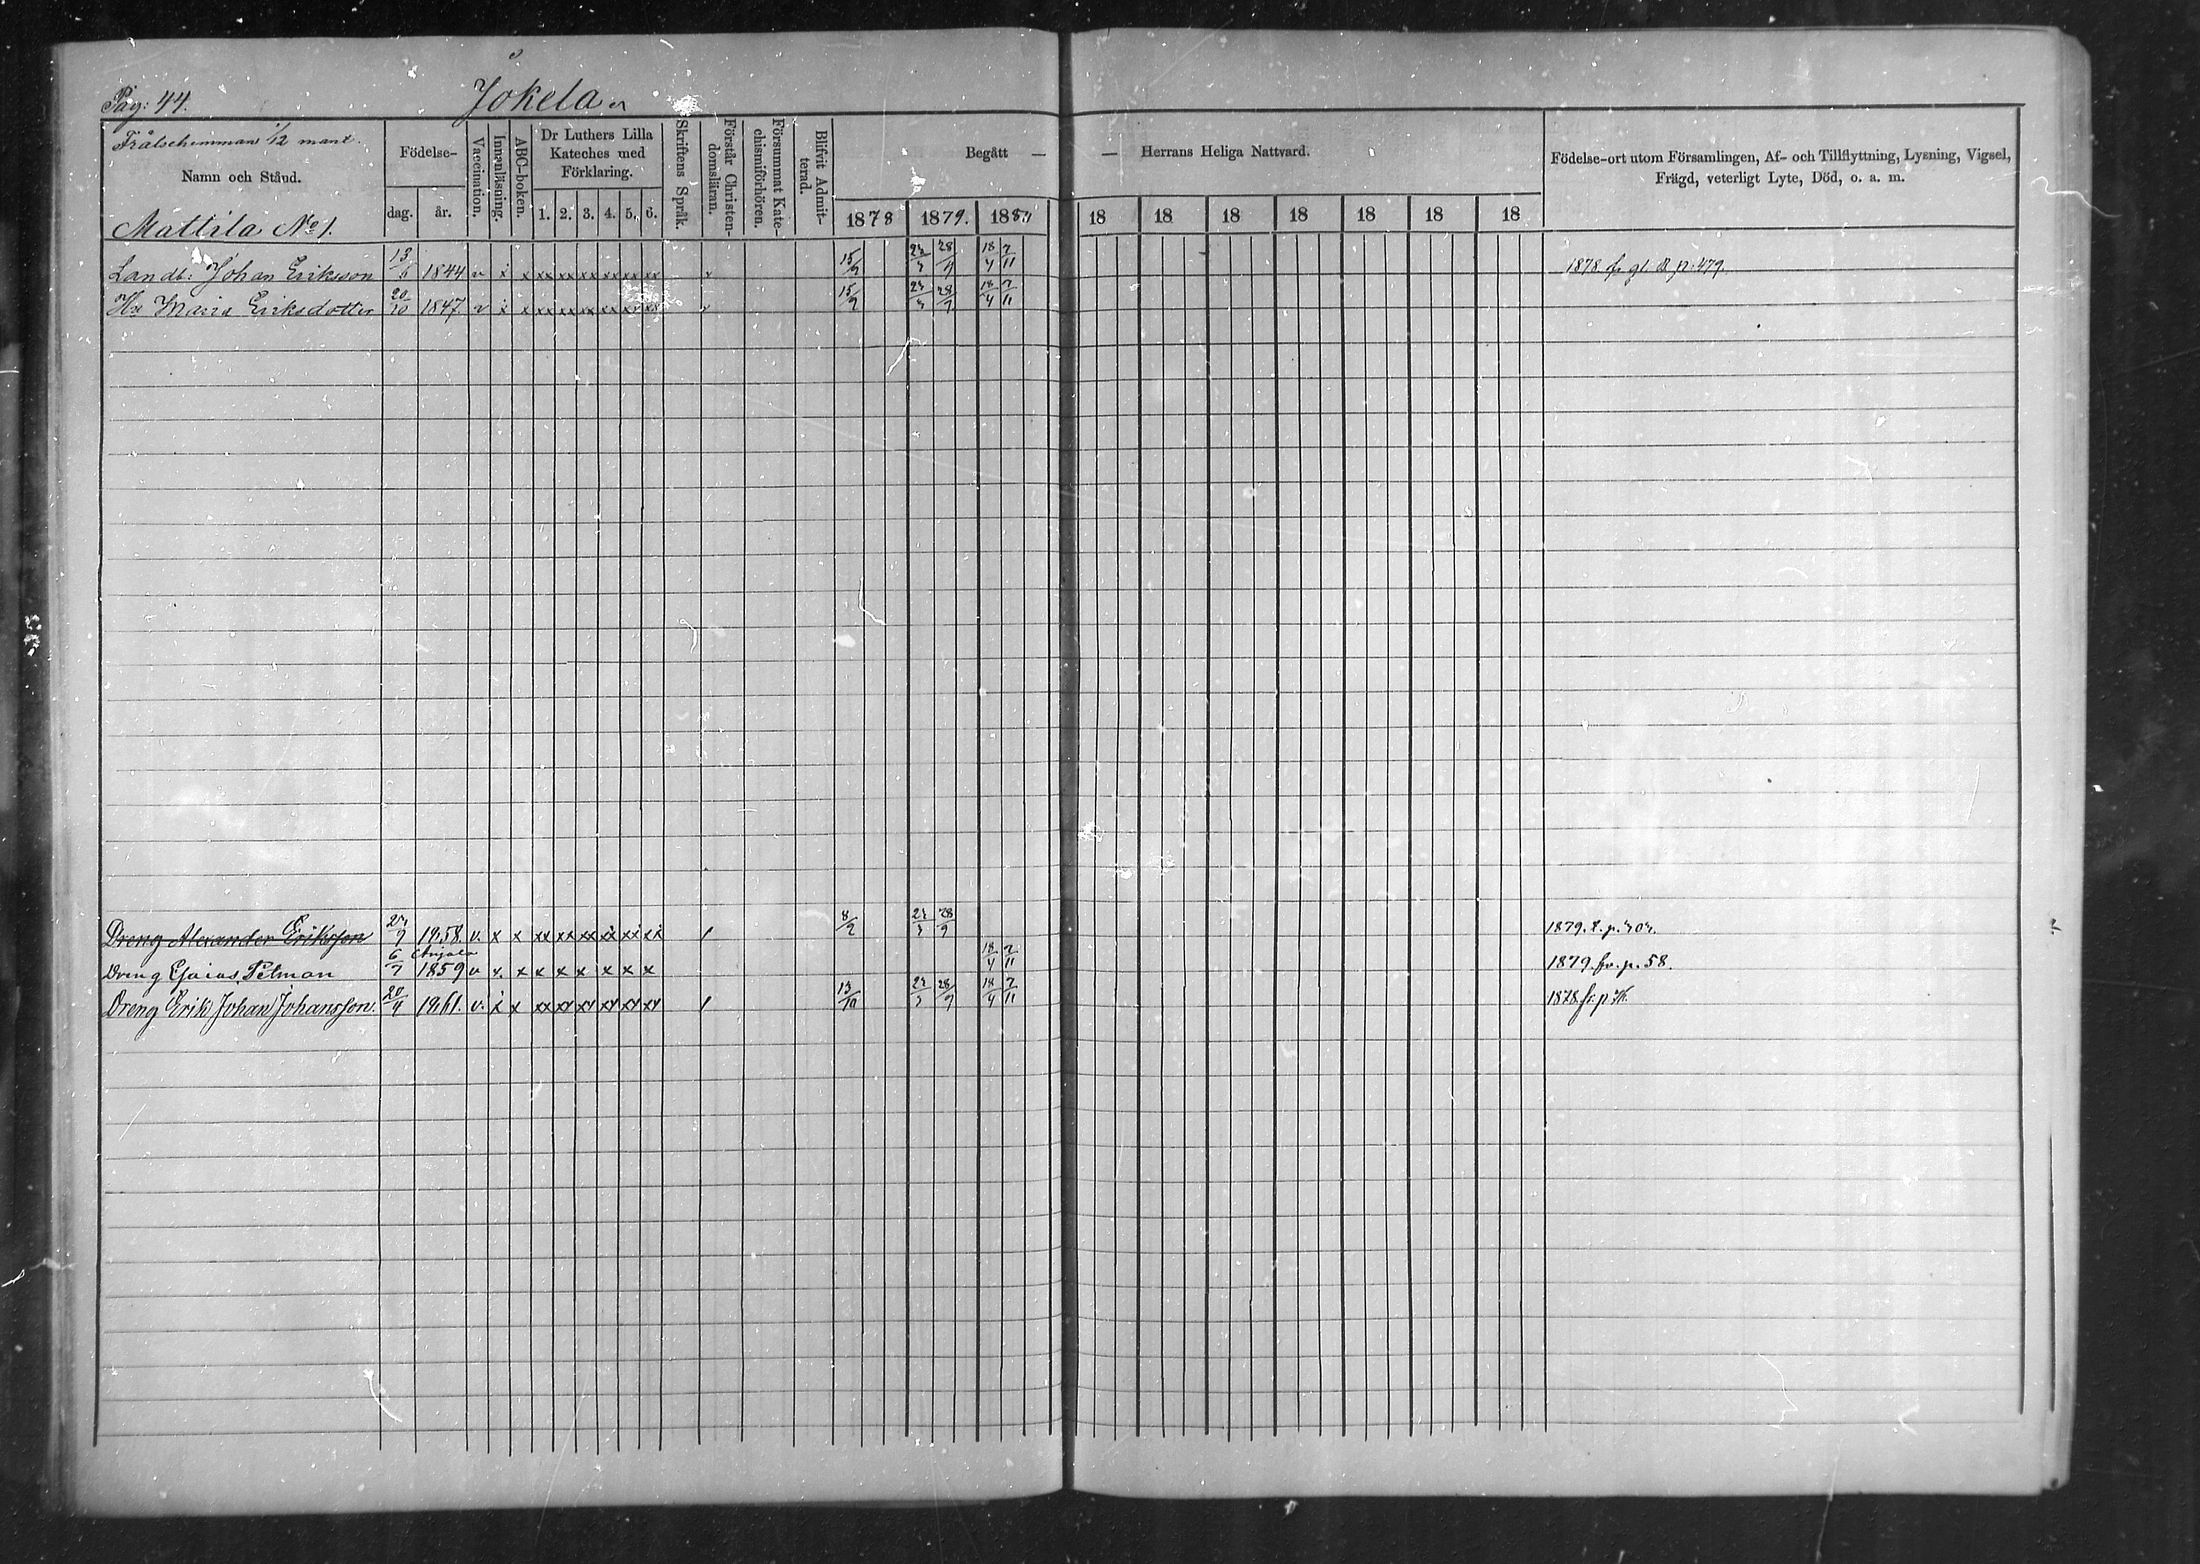 Pag: 44. Jokela
Frälsehemman 1/12 mant.
Namn och Stånd.
Födelse-
dag. år.
Vaccination.
Innanläsning.
ABC-boken.
Dr Luthers Lilla
Kateches med
Förklaring.
1. 2. 3. 4. 5. 6.
Skriftens Språk.
Förstår Christen-
domsläran.
Försummat Kate-
chismiförhören.
Blifvit Admit-
terad.
Begått — — Herrans Heliga Nattvard.
1878 1879. 188 18 18 18 18 18 18 18
Födelse-ort utom Församlingen, Af- och Tillflyttning, Lysning, Vigsel,
Frägd, veterligt Lyte, Död, o. a. m.
Mattila No 1.
Landb: Johan Eriksson 13/6 1844 v x x xx xx xx xx xx xx 15/9 28/9 18/4 2/11 1878 fr gl. B p. 479.
Hu Maria Eriksdotter 20/10 1847. v x x xx xx xx xx xx xx 15/9 28/9 18/4 2/11
Dreng Alexander Eriksson 1858. v. x x xx xx xx xx xx xx / 8/2 28/9 1879. t. p.
Anjala
Dreng Gaius Pelman 6/7 1859 v x. x x x x x x x 18/4 2/11 1879. fr. p. 58.
Dreng Erik Johan Johansson. 20/4 1861. v. x x xx xx xx xx xx xx / 13/10 28/9 18/4 2/11 1878 fr. p